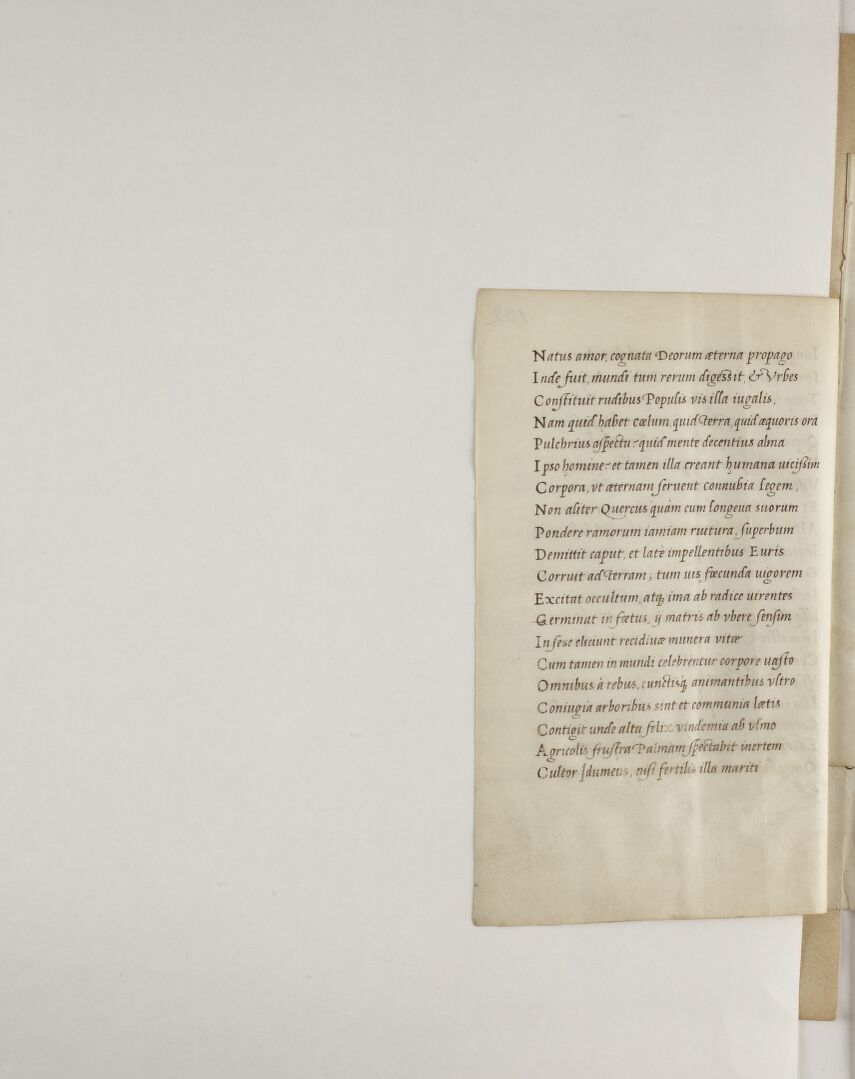 Natus amor, cognata Deorum æterna propago
Inde fuit, mundi tum rerum digessit, & Vrbes
Constituit rudibus Populis vis illa iugalis,
Nam quid habet cœlum, quid Terra, quid æquoris ora
Pulchrius aspectu? quid mente decentius alma
Ipso homine? et tamen illa creant humana uicissim
Corpora, vt æternam seruent connubia legem,
Non aliter Quercus quàm cum longeua suorum
Pondere ramorum iamiam ruitura, superbum
Demittit caput, et latè impellentibus Euris
Corruit ad Terram; tum uis fœcunda uigorem
Excitat occultum, atq; ima ab radice uirentes
Germinat in fœtus, ij matris ab vbere sensim
In sese eliciunt recidiuæ munera vitæ
Cum tamen in mundi celebrentur corpore uasto
Omnibus à rebus, cunctisq; animantibus vltro
Coniugia arboribus sint et communia lætis
Contigit unde alta felix vindemia ab vlmo
Agricolis, frustra Palmam spectabit inertem
Cultor Idumeus, nisi fertilis illa mariti